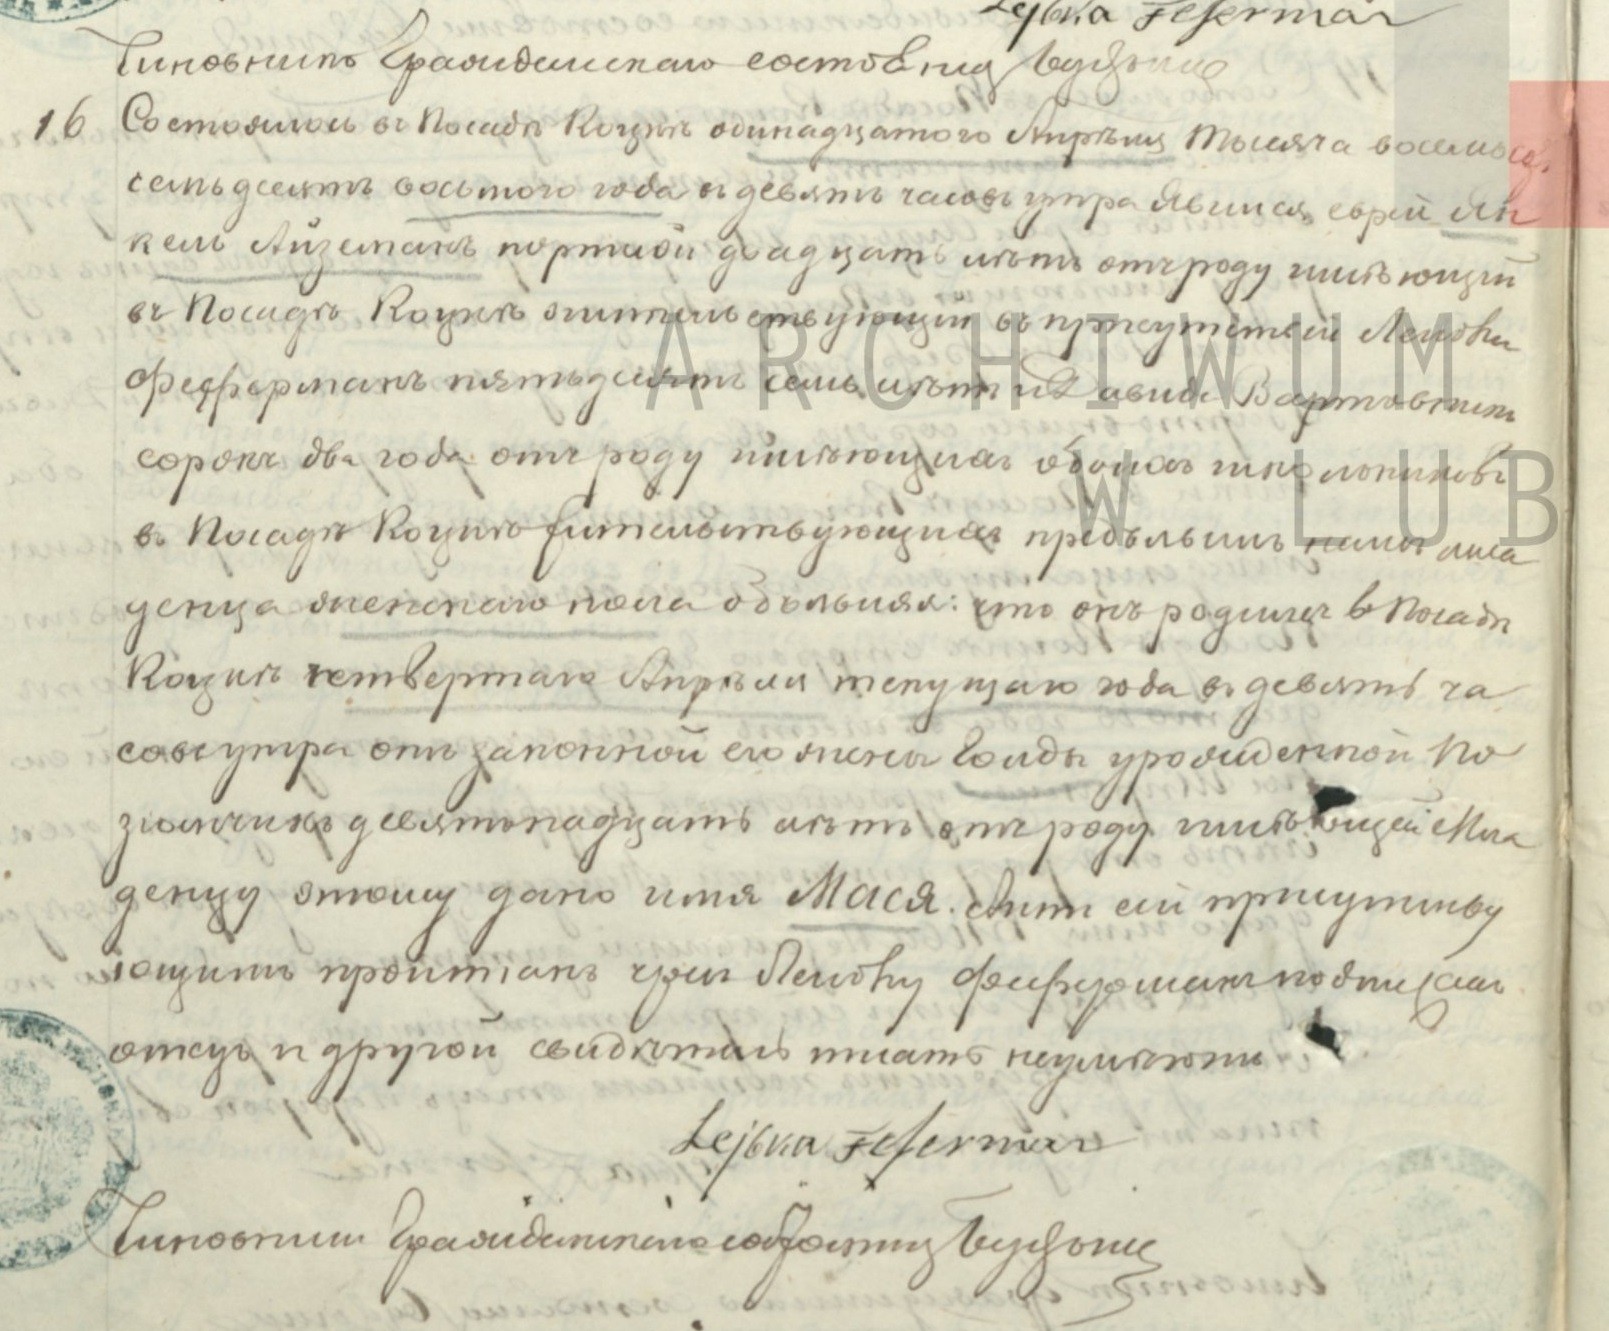 Lejbka Feferman
Чиновникъ Гражданскаго состоянія
16 Состоялось въ Посадѣ Коцкѣ одинадцатого Апрѣля тысяча восемьсо.
семьдесятъ восьмого года въ девять часовъ утра Явился, еврей Ян
кель Айземанъ портной двадцать лѣтъ отъ роду имѣющій
въ Посадѣ Коцкѣ жительствующій въ присутствіи Лейбки
Фефферманъ пятьдесятъ семь лѣтъ и Давида
сорокъ два года отъ роду имѣющихъ обоихъ школьниковъ
въ Посадѣ Коцкѣ жительствующихъ предъявилъ намъ мла
денца женскаго пола объявляя: что онъ родился въ Посадѣ
Коцкѣ четвертаго Апрѣля текущаго года въ девять ча
совъ утра отъ законной его жены Голды урожденной Ко
девятьнадцать лѣтъ отъ роду имѣющей Мла
денцу этому дано имя Мася. Актъ сей присутству
ющимъ прочитанъ чрезъ Лейбку Феферманъ подписанъ
отецъ и другой свидѣтель писать неумѣютъ
Lejbka Feferman
Чиновникъ Гражданскаго состоянія
ARCHIWUM
W LUB